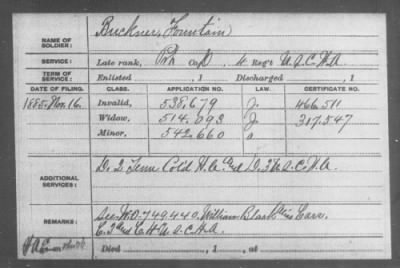 Buckner, Fountain
NAME OF SOLDIER:
SERVICE: Late rank, Pvt Co. D, 4 Reg't U.S.C.H.A.
TERM OF SERVICE: Enlisted , 1 Discharged , 1
DATE OF FILING. CLASS. APPLICATION NO. LAW. CERTIFICATE NO.
1885. Nov. 16. Invalid, 538,679 J. 466,511
Widow, 514,093 J. 317,547
Minor, 542,660
ADDITIONAL SERVICES: D. 2 Tenn Cold H.A. and D. 3 U.S.C.H.A.
REMARKS: See W.O. 749,440. William Black alias Carr.
C. 3 and C. 4 U.S.C.H.A.
Died , 1 , at